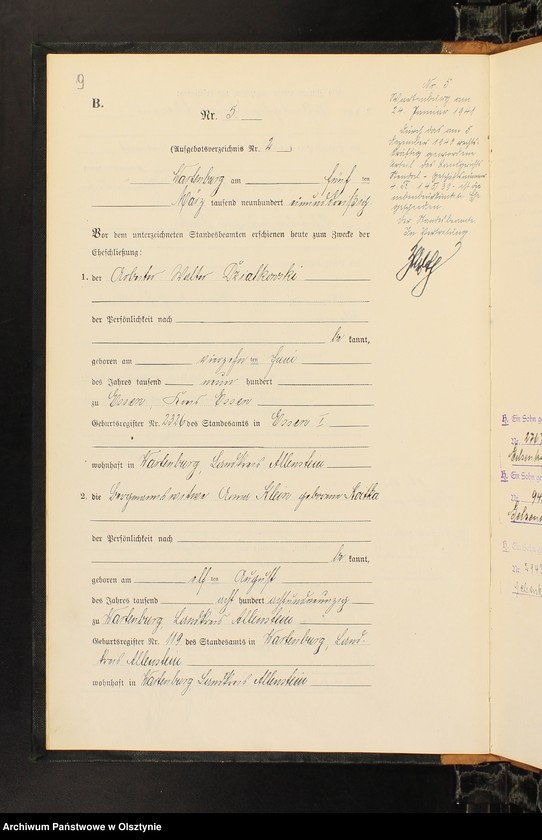 9
B.
Nr. 5
(Aufgebotsverzeichnis Nr. 2)
Wartenburg am fünf ten
März tausend neunhundert einunddreißig
Vor dem unterzeichneten Standesbeamten erschienen heute zum Zwecke der
Eheschließung:
1. der Arbeiter Walter Dzialkowski
der Persönlichkeit nach
be kannt,
geboren am vierzehn ten Juni
des Jahres tausend neun hundert
zu Essen, Kreis Essen
Geburtsregister Nr. 2326 des Standesamts in Essen I
wohnhaft in Wartenburg, Landkreis Allenstein
2. die Bergmannswitwe Anna Klein geborene
der Persönlichkeit nach
be kannt,
geboren am elf ten August
des Jahres tausend acht hundert achtundneunzig
zu Wartenburg Landkreis Allenstein
Geburtsregister Nr. 119 des Standesamts in Wartenburg, Land-
kreis Allenstein
wohnhaft in Wartenburg, Landkreis Allenstein
Nr. 5
Wartenburg am
24 Januar 1941
Durch das am 6.
Dezember 1941 rechts-
kräftig gewordene
Urteil des Landgerichts
ist die
nebenbeurkundete Ehe
geschieden
Der Standesbeamte
In Vertretung
H. Ein Sohn g
Nr.
H. Ein Sohn g
Nr. 94
H. Ein Sohn g
Nr.
Archiwum Państwowe w Olsztynie